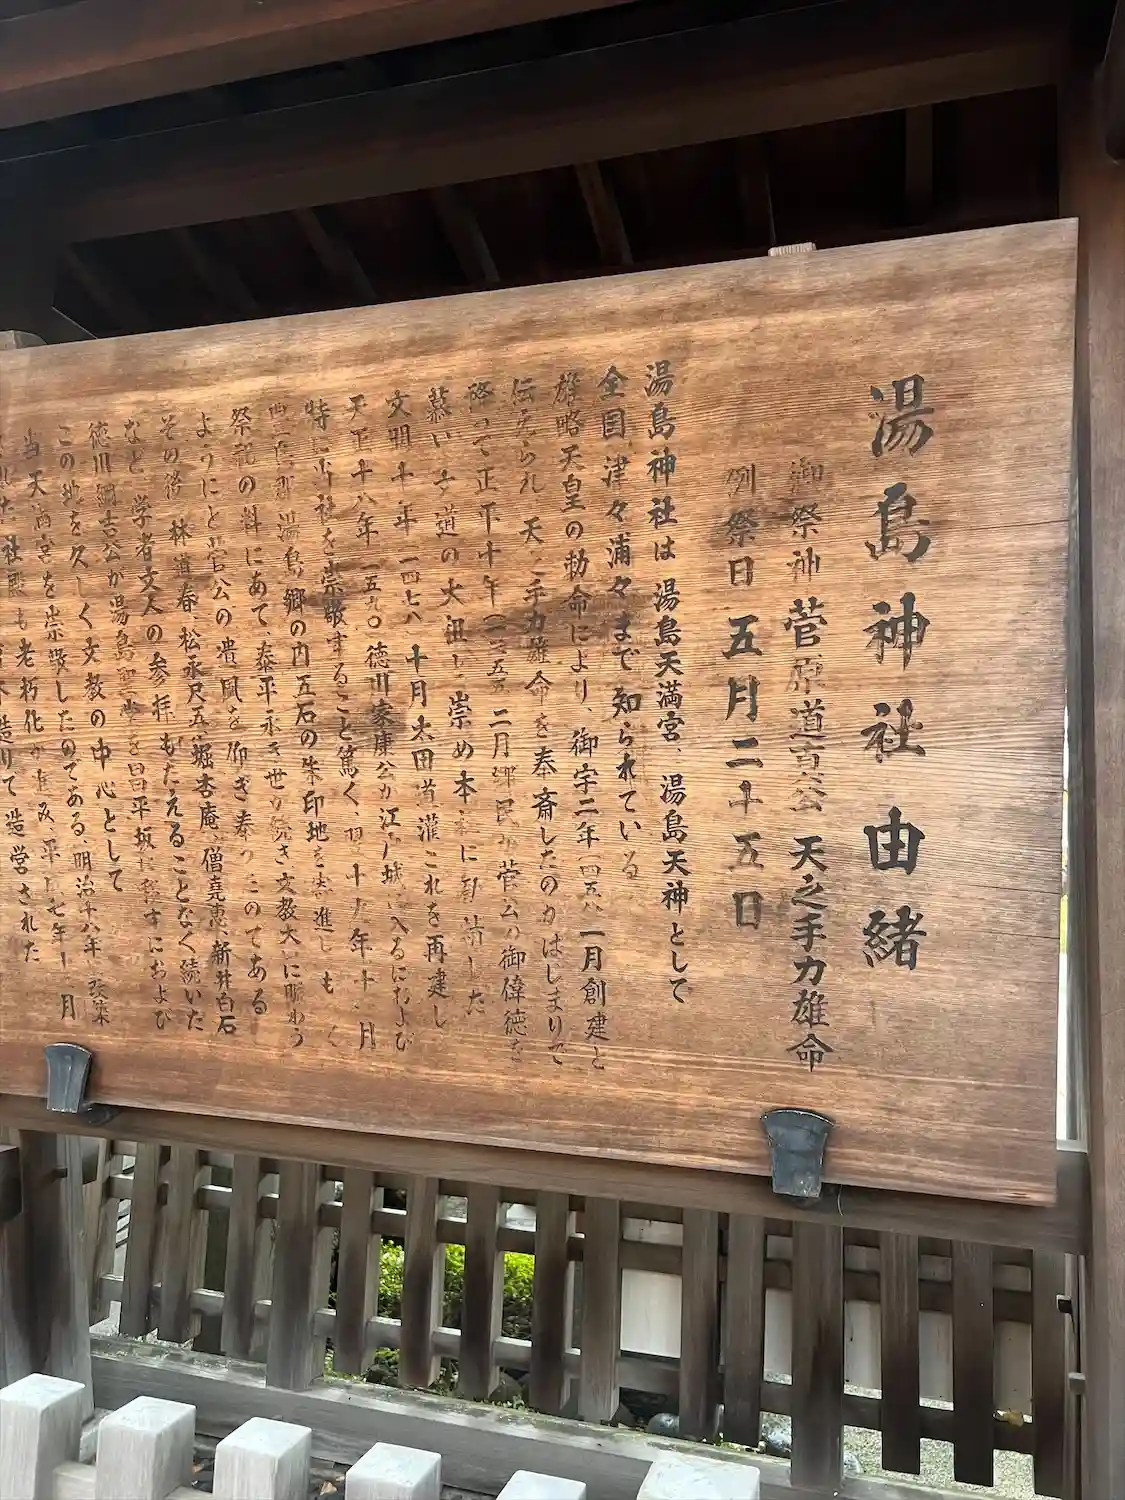 湯島神社由緒
御祭神 菅原道真公 天之手力雄命
例祭日 五月二十五日
湯島神社は湯島天満宮、湯島天神として
全国津々浦々まで知られている
雄略天皇の勅命により、御宇二年(四五八)一月創建と
伝えられ 天之手力雄命を奉斎したのがはじまりで
降って正平十年(一三五五)二月郷民が菅公の御偉徳を
慕い 文道の大祖と崇め本社に勧請した
文明十年 一四七八 十月太田道灌これを再建し
天正十八年 一五九〇 徳川家康公が江戸城に入るにおよび
特に当社を崇敬すること篤く、翌十九年十一月
湯島郷の内五石の朱印地を寄進し もって
祭祀の料にあて、泰平永き世が続き文教大いに賑わう
ようにと菅公の遺風を仰ぎ奉ったのである
その後 林道春、松永尺五、堀杏庵、僧堯恵、新井白石
など 学者文人の参拝もたえることなく続いた
徳川綱吉公が湯島聖堂を昌平坂に移すにおよび
この地を久しく文教の中心として
当天満宮を崇敬したのである、明治十八年に改築
された社殿も老朽化が進み、平成七年十二月
造りで造営された